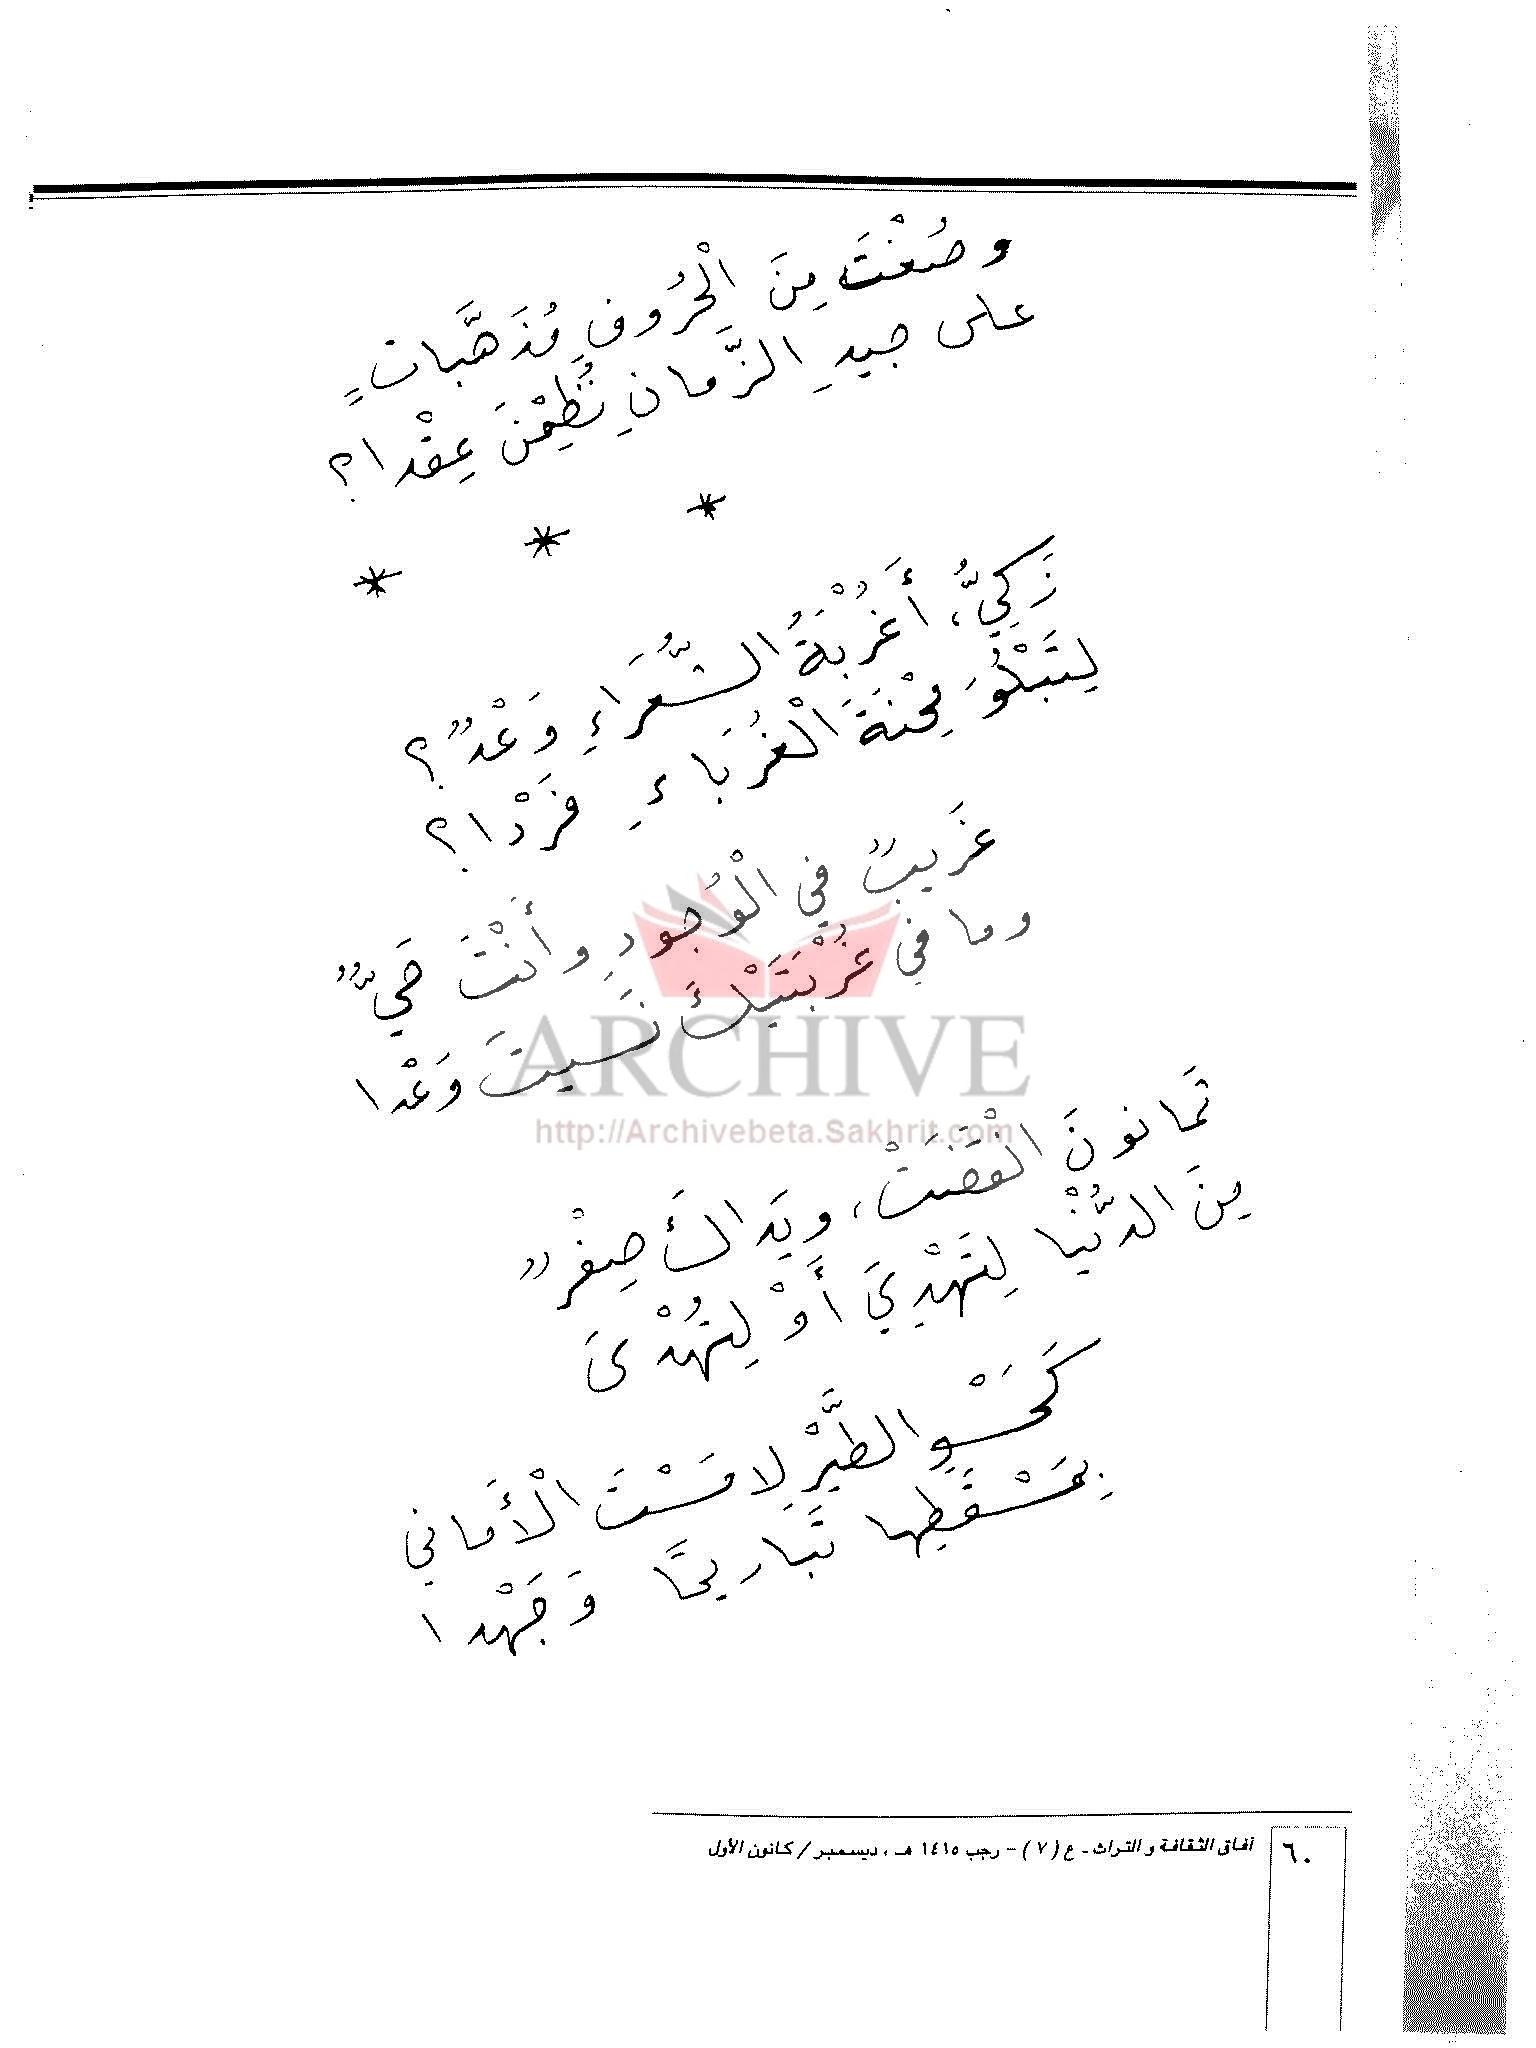 وصُغْتَ مِنَ الْحُرُوفِ مُذَهَّباتٍ
على جيدِ الزَّمانِ نُظِمْنَ عِقْدا؟
* * *
زَكِيُّ، أَغُرْبَةُ الشُّعَرَاءِ وَعْدٌ؟
لِتَبْلُوَ مِحْنَةَ الْغُرَبَاءِ فَرْدا؟
غَريبٌ في الْوُجودِ وأَنْتَ حَيٌّ
وما في غُرْبَتَيْكَ نَسيتَ وَعْدا
ثَمانونَ انْقَضَتْ، ويَداكَ صِفْرٌ
مِنَ الدُّنْيا لِتَهْدِيَ أَوْ لِتُهْدىَ
كَحَسْوِ الطَّيْرِ لامَسْتَ الْأَماني
بِمَسْقَطِها تَباريحًا وَجَهْدا
ARCHIVE
http://Archivebeta.Sakhrit.com
٦٠ آفاق الثقافة و التراث ـ ع ( ٧ ) – رجب ١٤١٥ هـ ، ديسمبر / كانون الأول